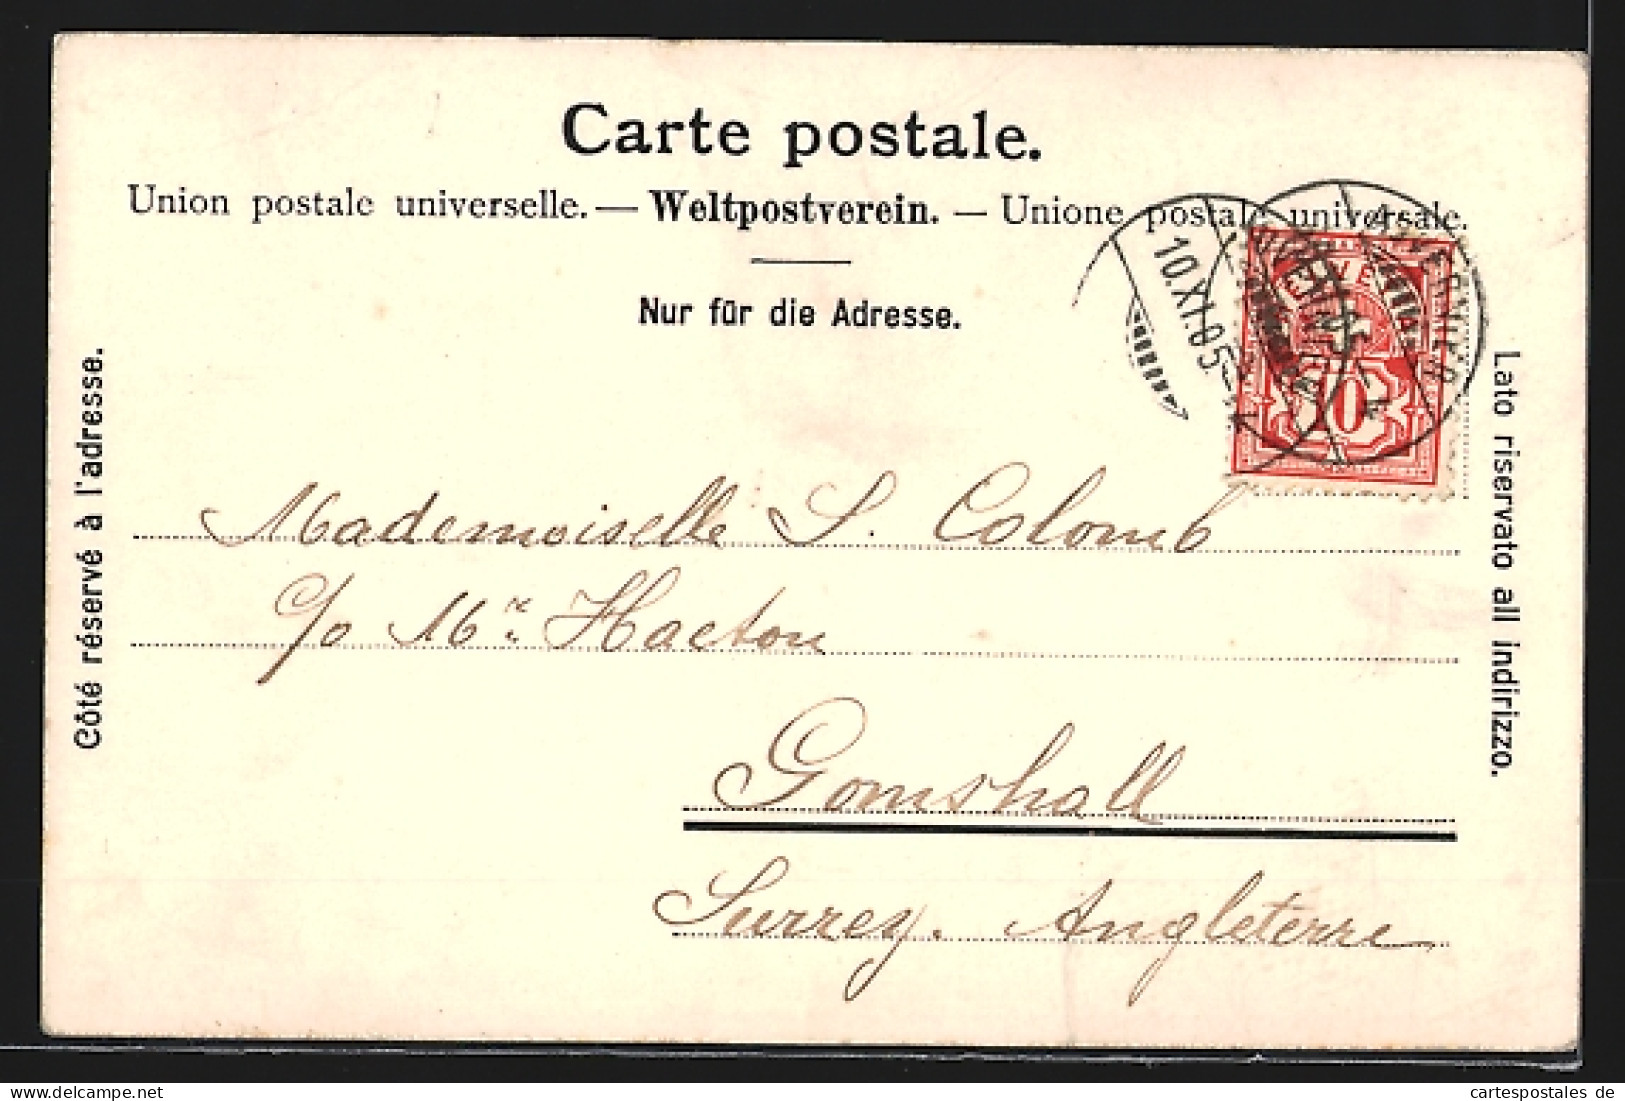 Carte postale.
Union postale universelle. — Weltpostverein. — Unione postale universale.
Nur für die Adresse.
Côté réservé à l'adresse.
Lato riservato all indirizzo.
10.XI.05
AUVERNIER
HELVETIA
10
Mademoiselle S. Colomb
c/o Mr. Hacton
Gomshall
Surrey. Angleterre
cartespostales de